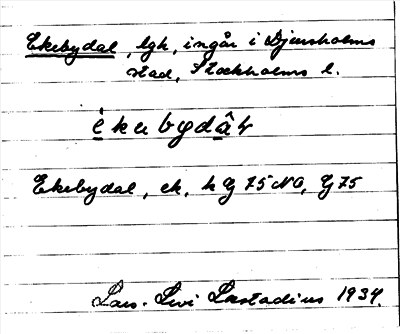 Ekebydal, lgh, ingår i Djursholms
stad, Stockholms l.
Ekebydal, ek, h G 75 NO, G 75
Lars-Levi Læstadius 1934.